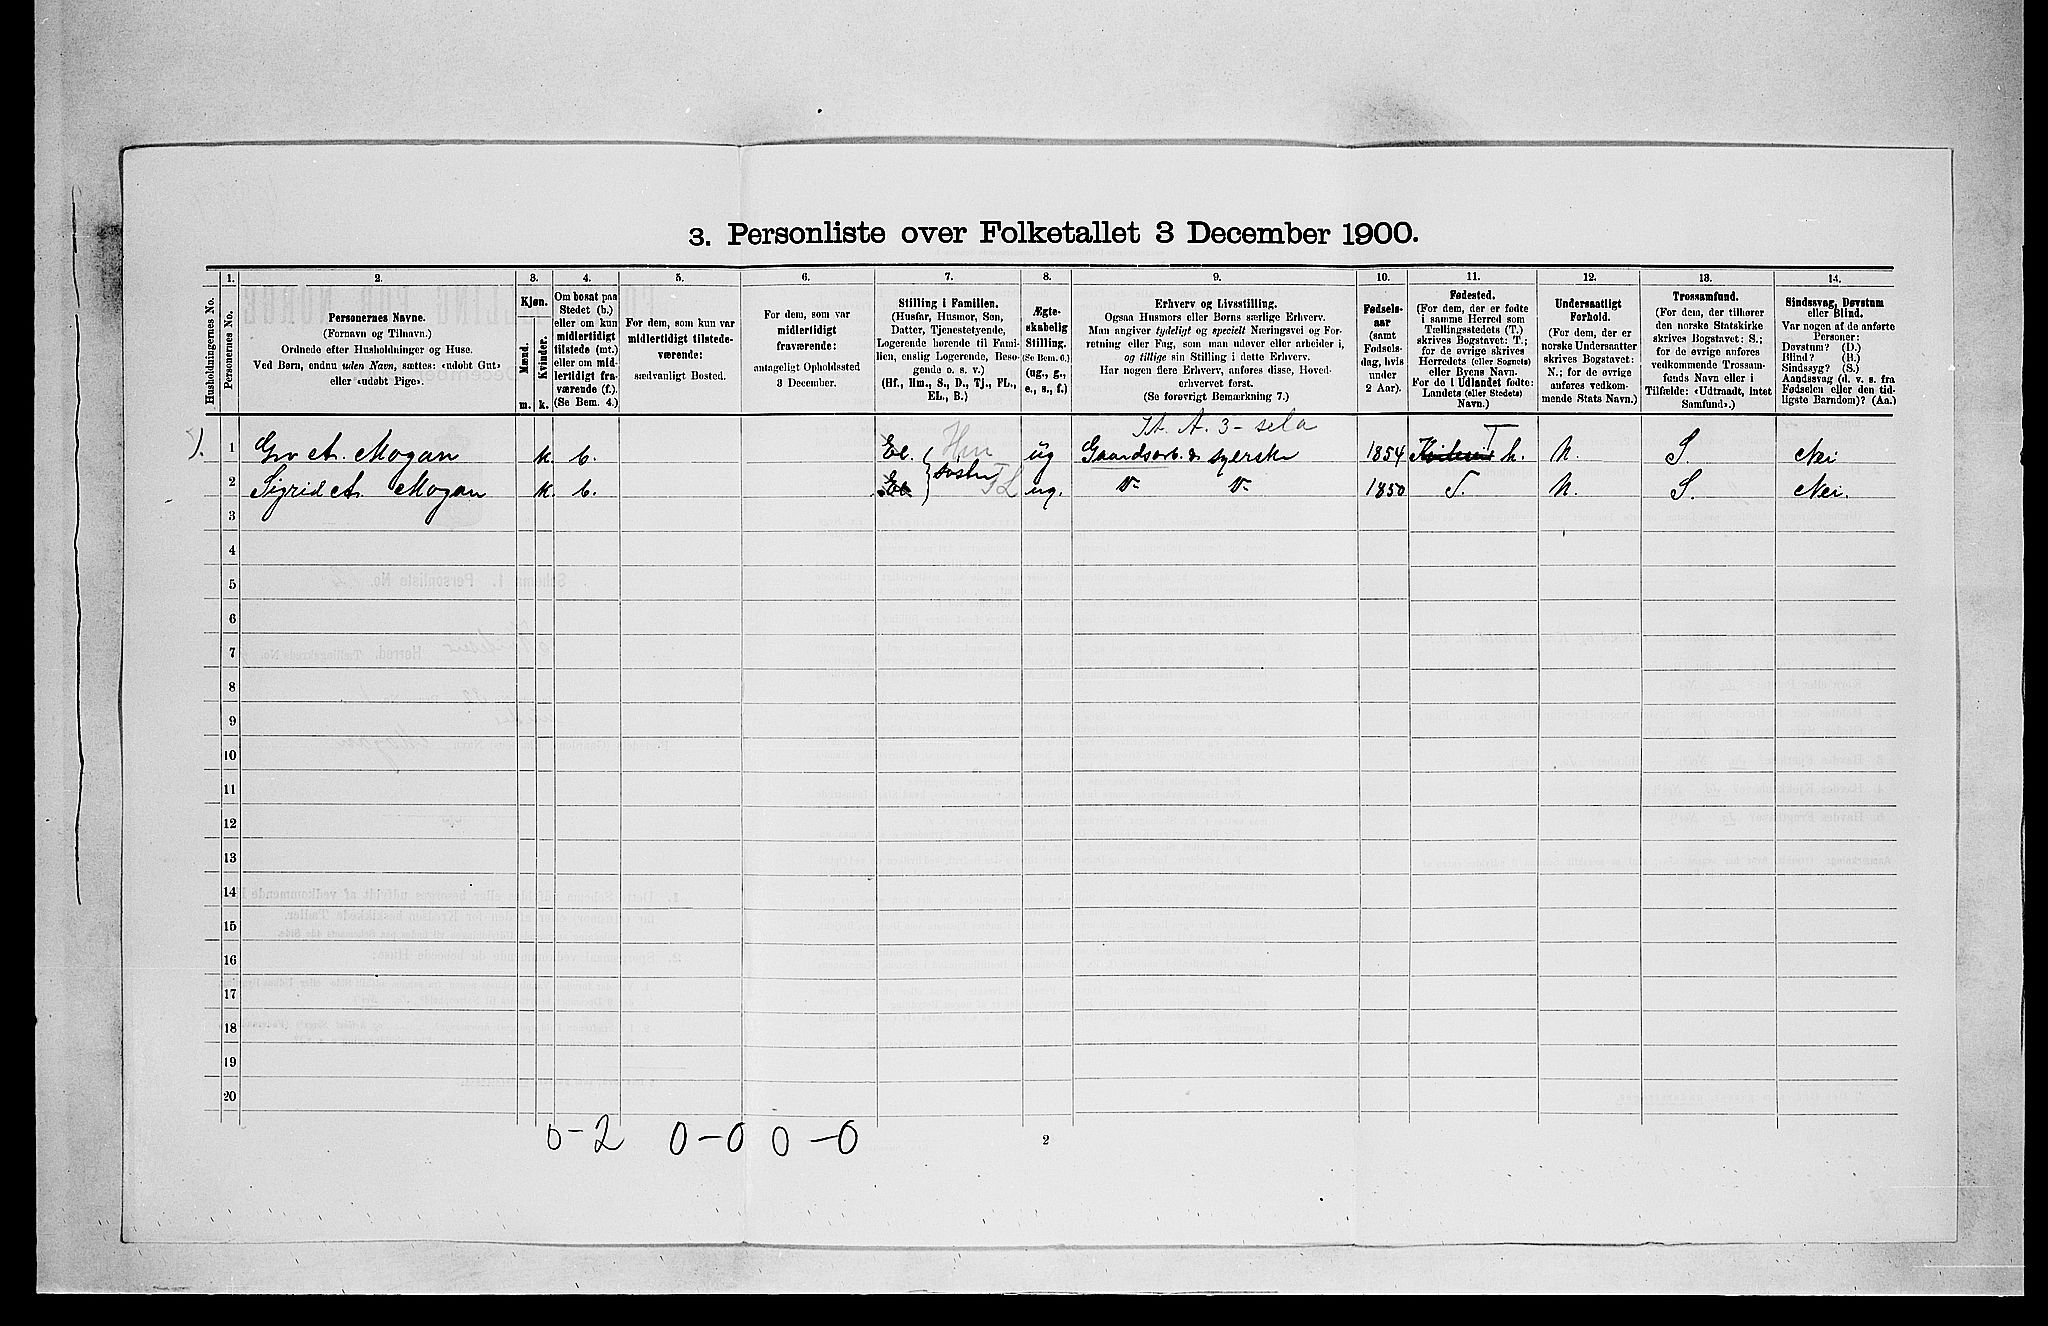 3. Personliste over Folketallet 3 December 1900.
Husholdningernes No.
1.
Personernes No.
2.
Personernes Navne.
(Fornavn og Tilnavn.)
Ordnede efter Husholdninger og Huse.
Ved Børn, endnu uden Navn, sættes: «udøbt Gut»
eller «udøbt Pige».
3.
Kjøn.
Mænd.
Kvinder.
m. k.
4.
Om bosat paa
Stedet (b.)
eller om kun
midlertidigt
tilstede (mt.)
eller om mid-
lertidigt fra-
værende (f.)
(Se Bem. 4.)
5.
For dem, som kun var
midlertidigt tilstede-
værende:
sædvanligt Bosted.
6.
For dem, som var
midlertidigt
fraværende:
antageligt Opholdssted
3 December.
7.
Stilling i Familien.
(Husfar, Husmor, Søn,
Datter, Tjenestetyende,
Logerende hørende til Fami-
lien, enslig Logerende, Besø-
gende o. s. v.)
(Hf., Hm., S., D., Tj., FL.,
EL., B.)
8.
Ægte-
skabelig
Stilling.
(Se Bem. 6.)
(ug., g.,
e., s., f.)
9.
Erhverv og Livsstilling.
Ogsaa Husmors eller Børns særlige Erhverv.
Man angiver tydeligt og specielt Næringsvei og For-
retning eller Fag, som man udøver eller arbeider i,
og tillige sin Stilling i dette Erhverv.
Har nogen flere Erhverv, anføres disse, Hoved-
erhvervet først.
(Se forøvrigt Bemærkning 7.)
10.
Fødsels-
aar
(samt
Fødsels-
dag, hvis
under
2 Aar).
11.
Fødested.
(For dem, der er fødte
i samme Herred som
Tællingsstedets (T.)
skrives Bogstavet: T.;
for de øvrige skrives
Herredets (eller Sognets)
eller Byens Navn.
For de i Udlandet fødte:
Landets (eller Stedets)
Navn.)
12.
Undersaatligt
Forhold.
(For dem, der er
norske Undersaatter
skrives Bogstavet:
N.; for de øvrige
anføres vedkom-
mende Stats Navn.)
13.
Trossamfund.
(For dem, der tilhører
den norske Statskirke
skrives Bogstavet: S.;
for de øvrige anføres
vedkommende Trossam-
funds Navn eller i
Tilfælde: «Udtraadt, intet
Samfund».)
14.
Sindssvag, Døvstum
eller Blind.
Var nogen af de anførte
Personer:
Døvstum? (D.)
Blind? (B.)
Sindssyg? (S.)
Aandssvag (d. v. s. fra
Fødselen eller den tid-
ligste Barndom)? (Aa.)
1 A. Mogan k. b. El. Hm ug Gaardsarb. & syerske 1854 T N. S. Nei
2 Sigrid A. Mogan k. b. El. søstre FL ug. 1850 T. N. S. Nei.
3
4
5
6
7
8
9
10
11
12
13
14
15
16
17
18
19
20
0-2 0-0 0-0
2